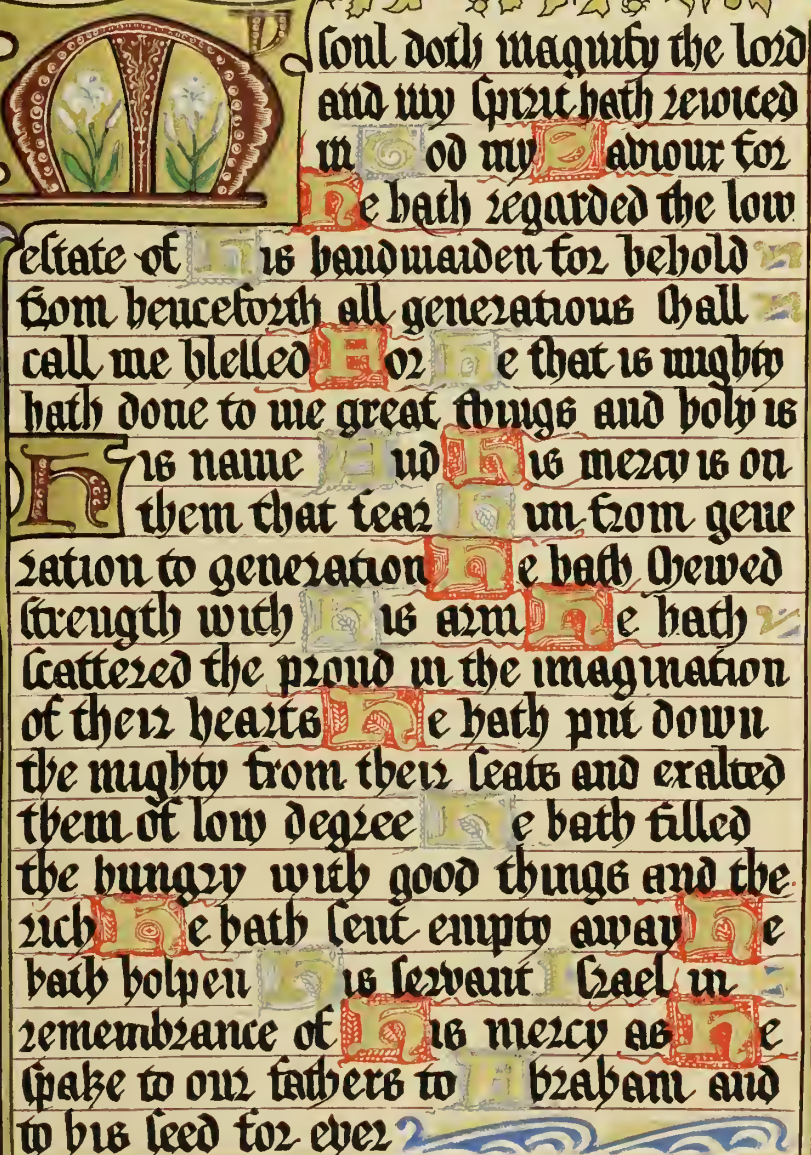 My
soul doth magnify the lord
and my spirit hath reioiced
in God my Saviour for
He hath regarded the low
estate of His handmaiden for behold
from henceforth all generations shall
call me blessed For He that is mighty
hath done to me great things and holy is
His name And His mercy is on
them that fear Him from gene
ration to generation He hath shewed
strength with His arm He hath
scattered the proud in the imagination
of their hearts He hath put down
the mighty from their seats and exalted
them of low degree He hath filled
the hungry with good things and the
rich He hath sent empty away He
hath holpen His servant Israel in
remembrance of His mercy as He
spake to our fathers to Abraham and
to his seed for ever